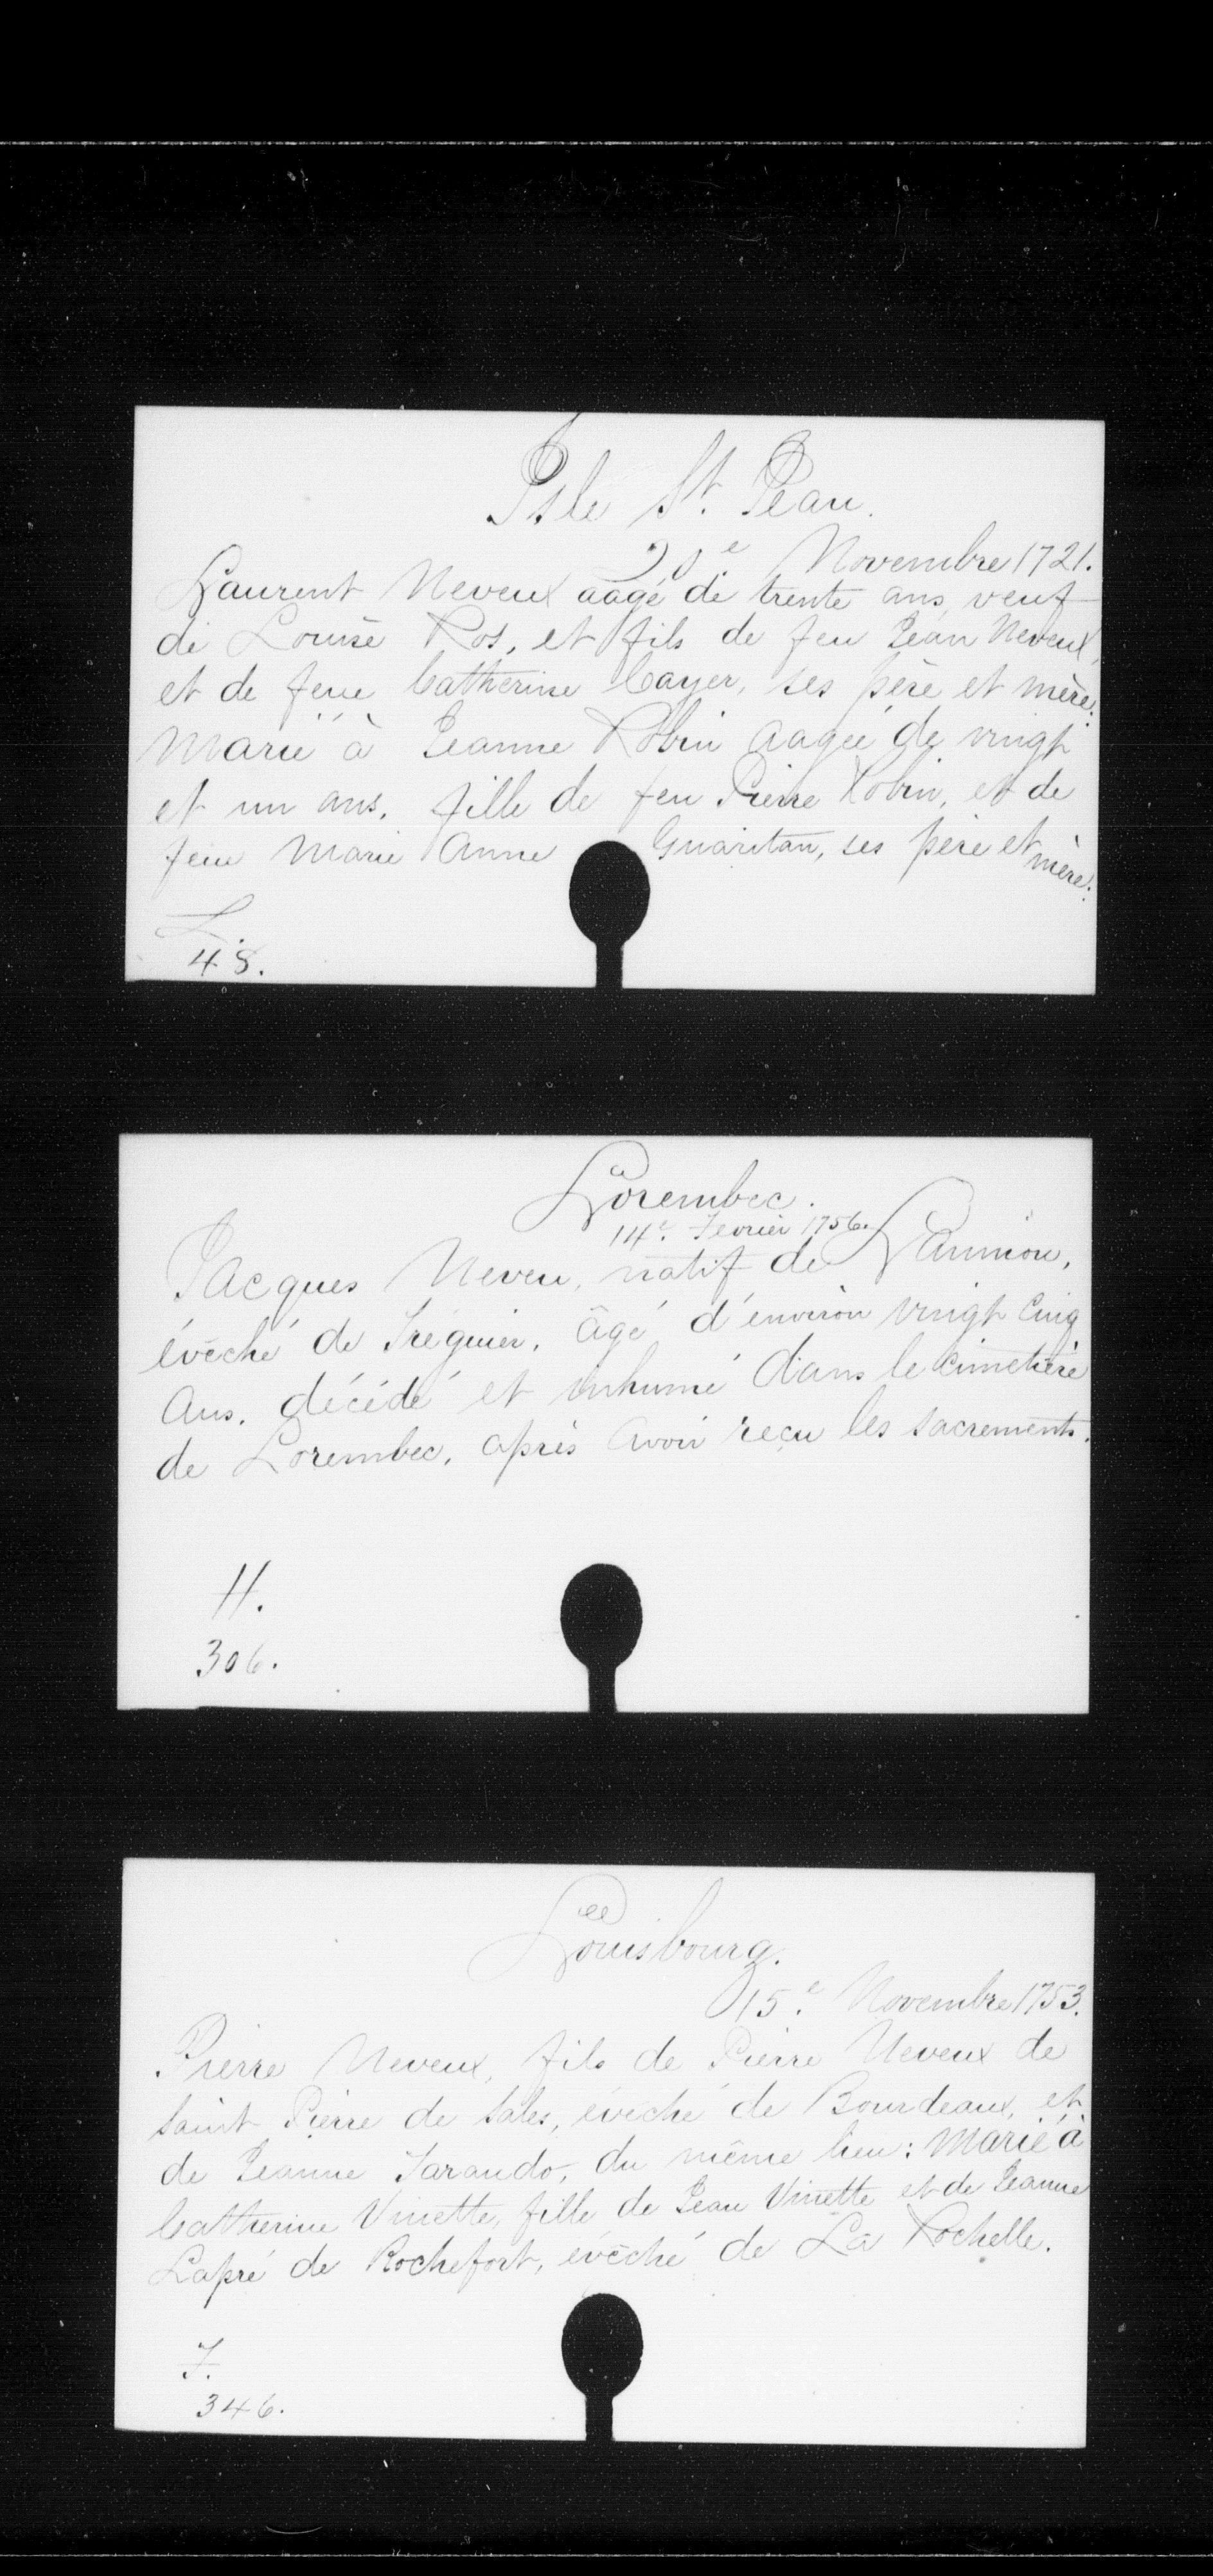 Isle St. Jean.
20e Novembre 1721.
Laurent Neveux aagé de trente ans, veuf
de Louise Ros, et fils de feu Jean Neveux,
et de feue Catherine Cayer, ses père et mère:
Marié à Jeanne Robin aagée de vingt
et un ans, fille de feu Pierre Robin, et de
feue Marie Anne Guaritan, ses père et mère:
L.
48.
Lorembec.
14e. Fevrier 1756.
Jacques Neveu, natif de Lannion,
évêché de Tréguier, âgé d'environ vingt cinq
ans, décédé et inhumé dans le cimetière
de Lorembec, après avoir reçu les sacrements.
H.
306.
Louisbourg.
15e. Novembre 1753.
Pierre Neveux, fils de Pierre Neveux de
Saint Pierre de Sales, évêché de Bourdeaux, et
de Jeanne Tarando, du même lieu: Marié à
Catherine Vinette, fille de Jean Vinette et de Jeanne
Lapré de Rochefort, évêché de La Rochelle.
346.